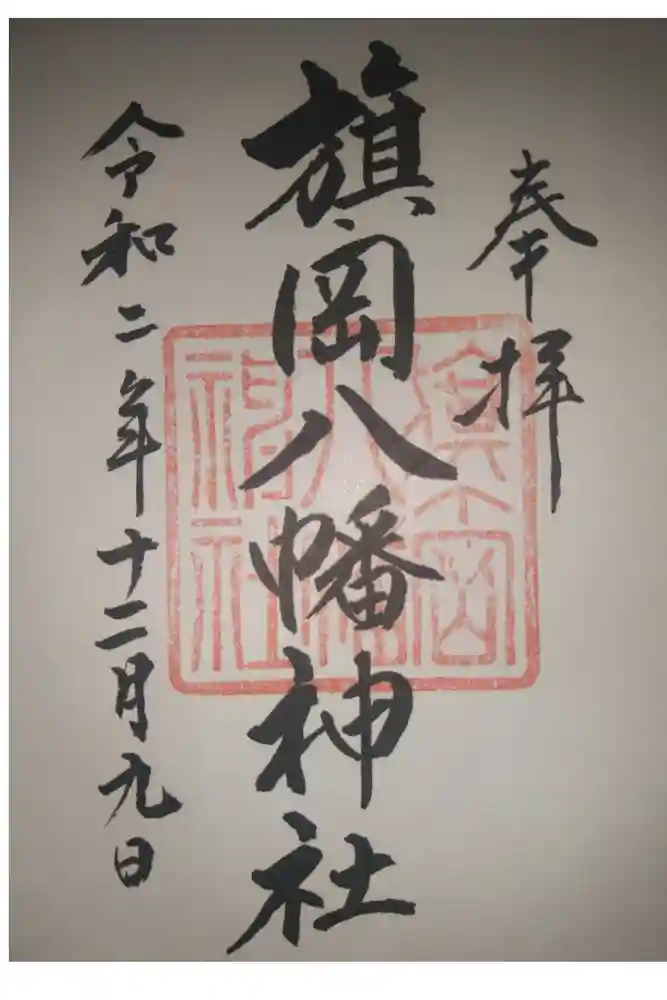 奉拝
旗岡八幡神社
旗岡八幡神社
令和二年十二月九日